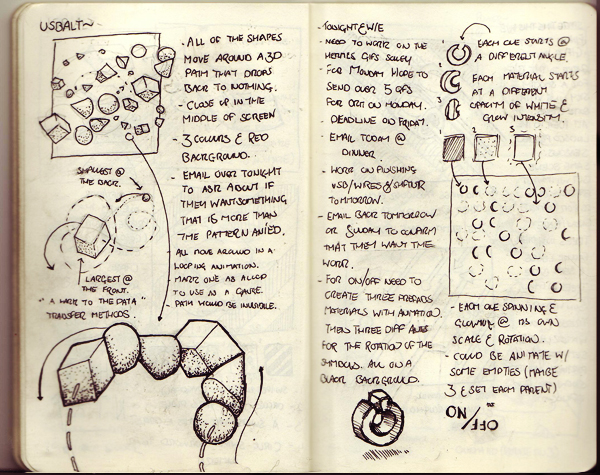 USBALT~
- ALL OF THE SHAPES
MOVE AROUND A 3D
PATH THAT DROPS
BACK TO NOTHING.
- CLOSE UP IN THE
MIDDLE OF SCREEN
- 3 COLOURS & RED
BACKGROUND.
- EMAIL OVER TONIGHT
TO ASK ABOUT IF
THEY WANT SOMETHING
THAT IS MORE THAN
THE PATTERN
ALL MOVE AROUND IN A
LOOPING ANIMATION.
MARK ONE AS ALLOD
TO USE IN A GAME.
PATH WOULD BE INVISIBLE.
SMALLEST @
THE BACK.
LARGEST @
THE FRONT.
"A WALK TO THE DATA"
TRANSFER METHODS.
- TONIGHT
- NEED TO WORK ON THE
HERMES GIFS SOLELY
- FOR MONDAY HOPE TO
SEND OVER 5 GIFS
FOR ON MONDAY.
DEADLINE ON FRIDAY.
- EMAIL TODAY @
DINNER.
- WORK ON FINISHING
USB/WIRES &
TOMORROW.
- EMAIL BACK TOMORROW
OR SUNDAY TO CONFIRM
THAT THEY WANT THE
WORK.
- FOR ON/OFF NEED TO
CREATE THREE
MATERIALS WITH ANIMATION.
THEN THREE DIFF AXIS
FOR THE ROTATION OF THE
SYMBOLS. ALL ON A
BLACK BACKGROUND.
1 EACH ONE STARTS @
A DIFFERENT ANGLE.
2 EACH MATERIAL STARTS
AT A DIFFERENT
3 OPACITY OF WHITE &
GLOW INTENSITY.
1 2 3
- EACH ONE SPINNING &
GLOWING @ ITS OWN
SCALE & ROTATION.
- COULD BE ANIMATE W/
SOME EMPTIES (MAYBE
3 & SET EACH PARENT)
OFF/ON